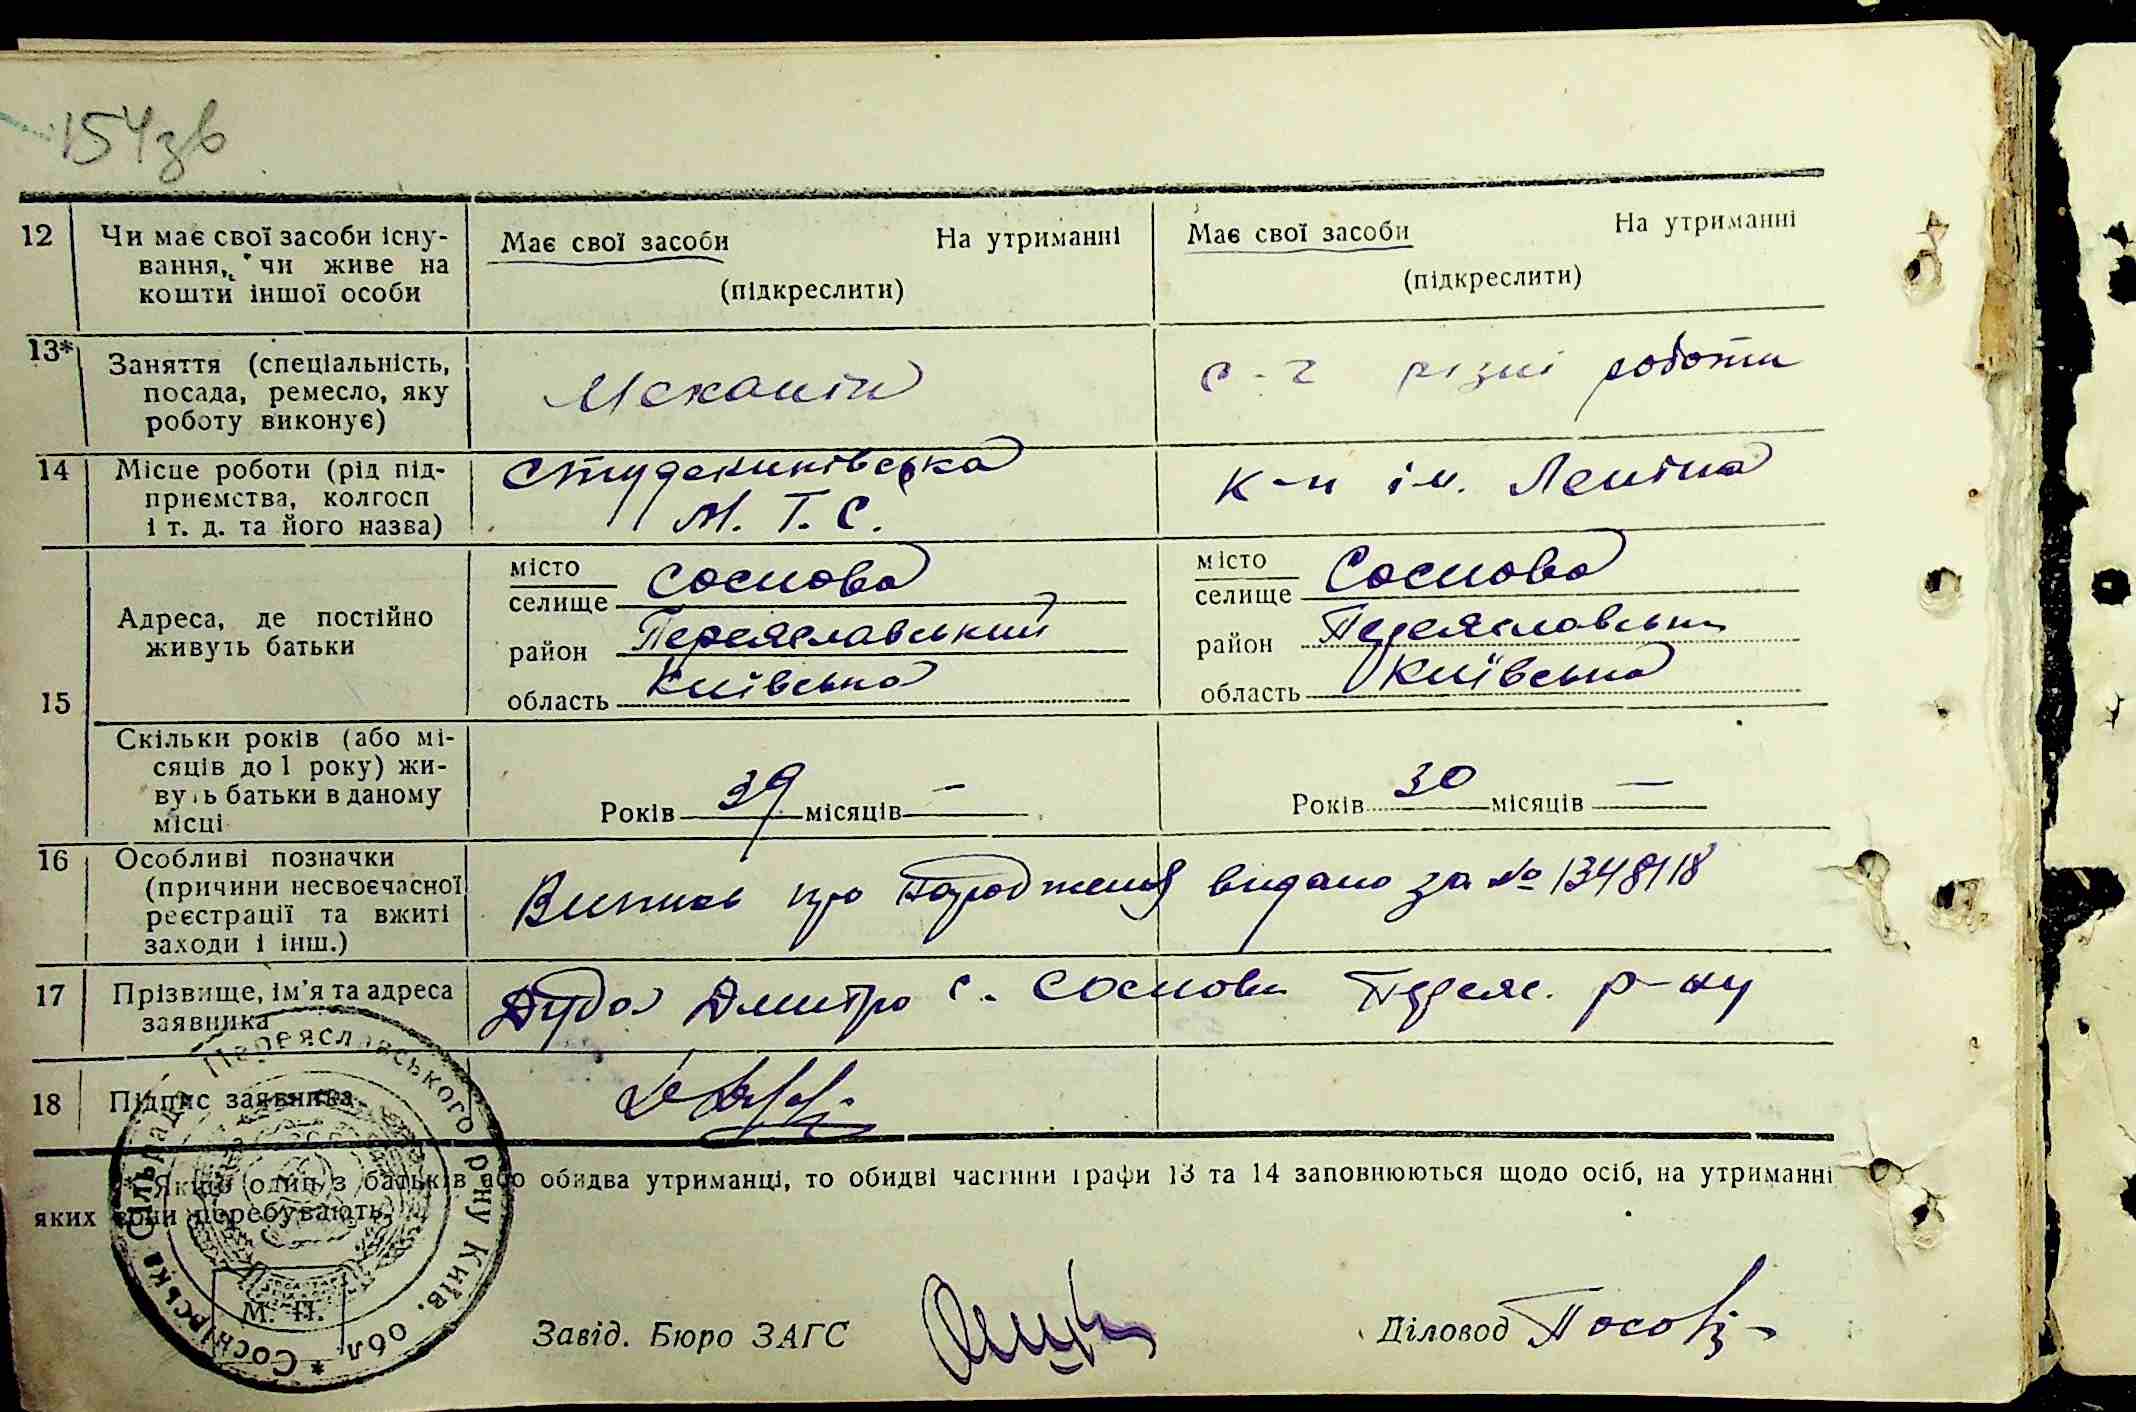 154зв
12 Чи має свої засоби існу- Має свої засоби На утриманні Має свої засоби На утриманні
вання, чи живе на (підкреслити) (підкреслити)
кошти іншої особи
13* Заняття (спеціальність, Механік с-г різні роботи
посада, ремесло, яку
роботу виконує)
14 Місце роботи (рід під- Студениківська к-п ім. Леніна
приємства, колгосп М. Т. С.
і т. д. та його назва)
15 Адреса, де постійно місто Соснова місто Соснова
живуть батьки селище селище
район Переяславський район Переяславськи
область Київська область Київська
Скільки років (або мі- Років 39 місяців — Років 30 місяців —
сяців до 1 року) жи-
вуть батьки в даному
місці
16 Особливі позначки Випись про народження видано за № 1348118
(причини несвоєчасної
реєстрації та вжиті
заходи і інш.)
17 Прізвище, ім'я та адреса Дуда Дмитро с. Соснови Переяс. р-ну
заявника
18 Підпис заявника
* Якщо один з батьків або обидва утриманці, то обидві частини графи 13 та 14 заповнюються щодо осіб, на утриманні
яких вони перебувають.
Соснівська Сільрада Переяславського р-ну Київ. обл.
М. П.
Завід. Бюро ЗАГС Діловод